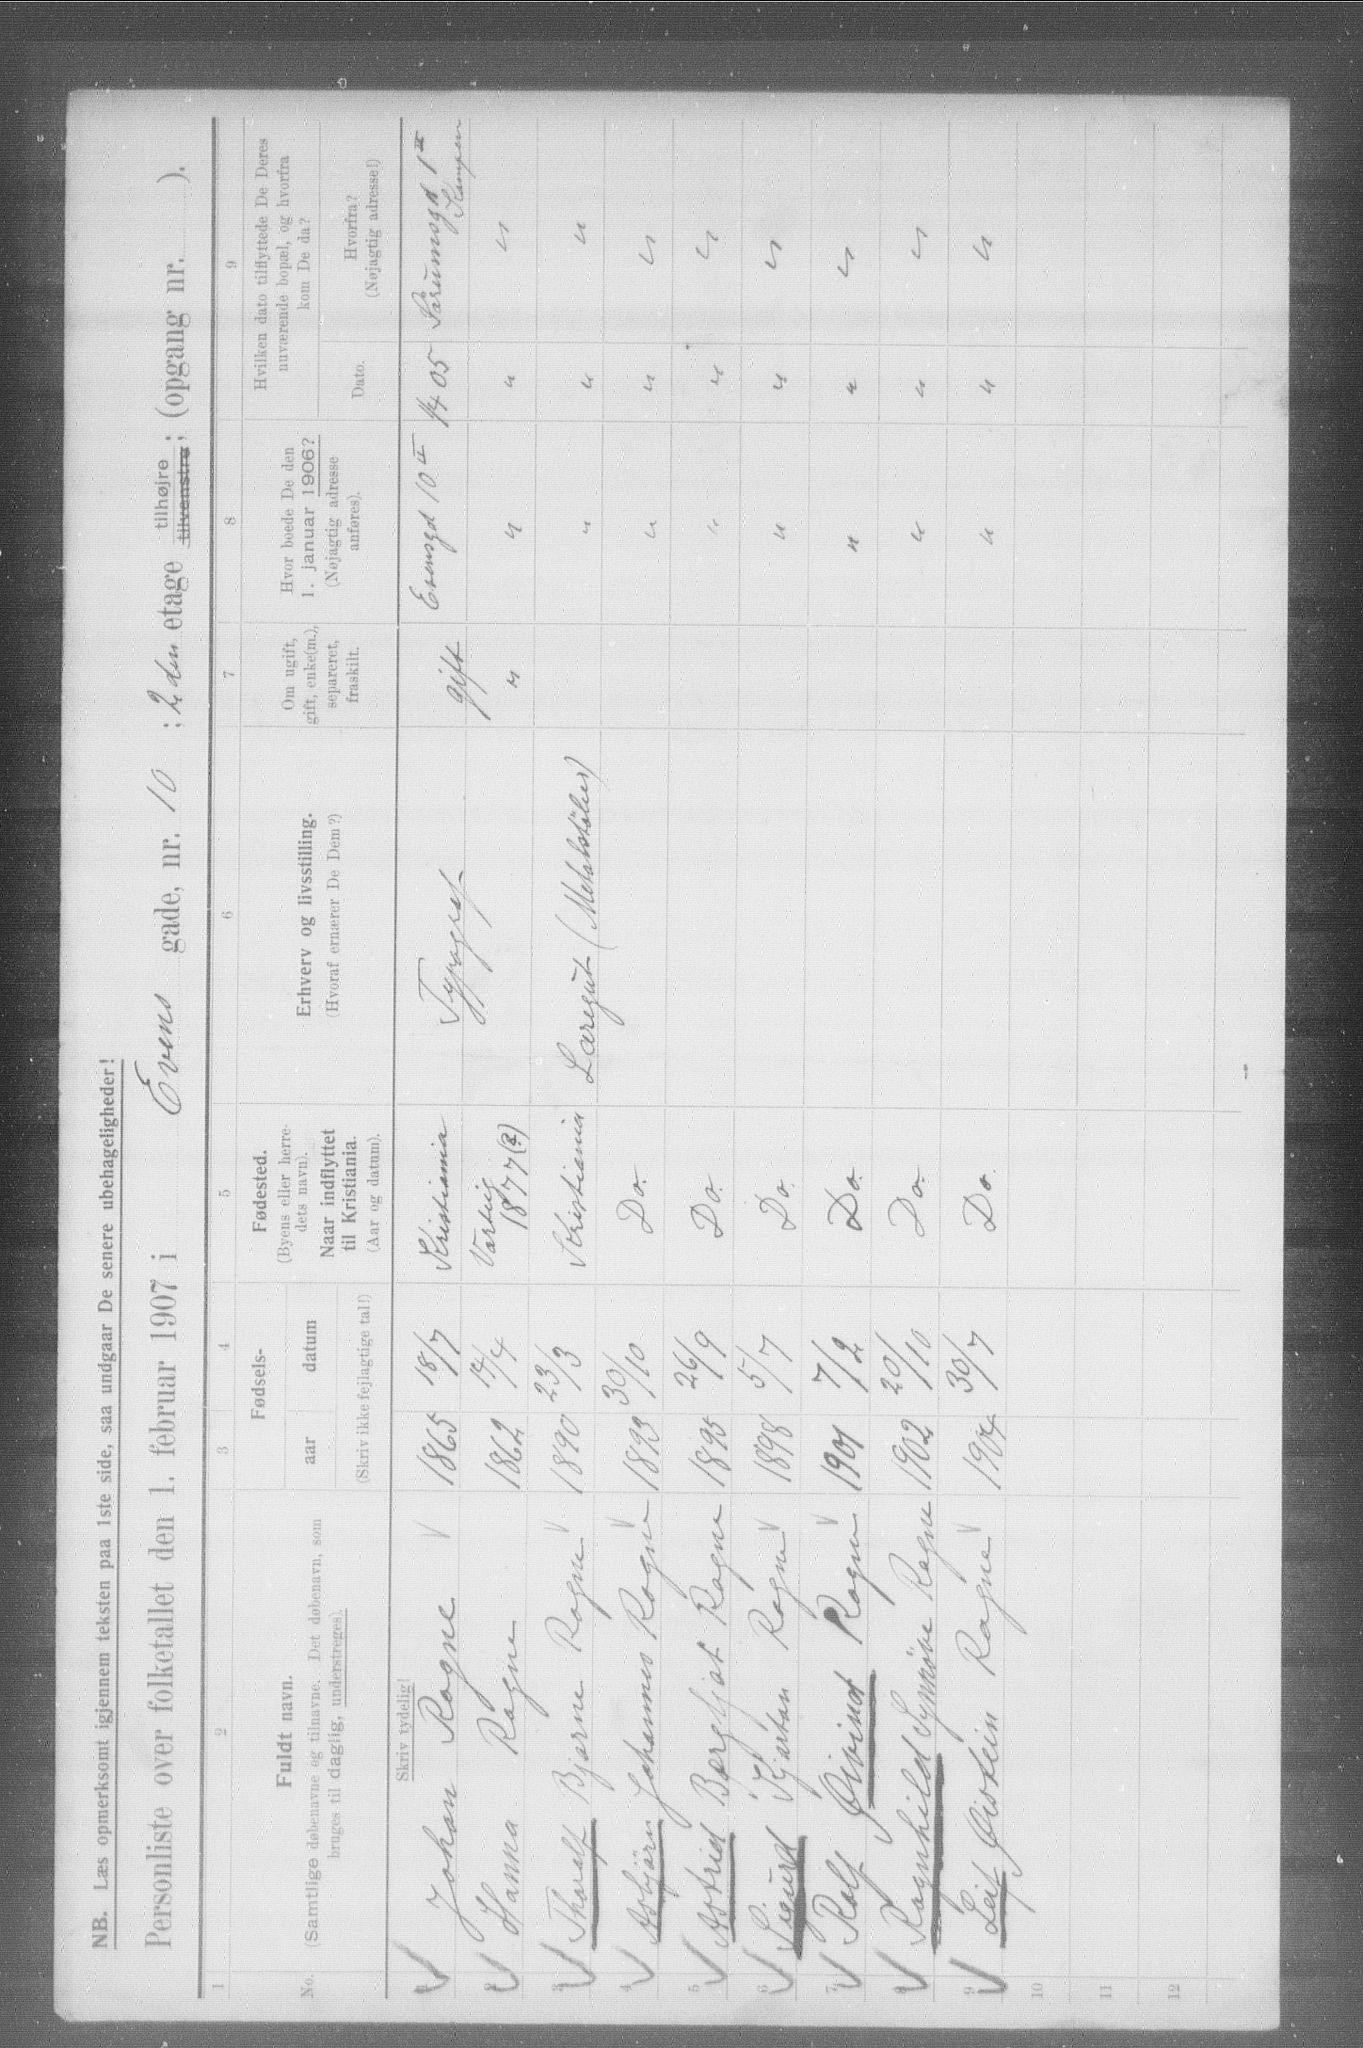 NB. Læs opmerksomt igjennem teksten paa 1ste side, saa undgaar De senere ubehageligheder!
Personliste over folketallet den 1. februar 1907 i Evens gade, nr. 10 ; 2den etage tilhøjre tilvenstre ; (opgang nr. ).
1 2 3 4 5 6 7 8 9
No.
Fuldt navn.
(Samtlige døbenavne og tilnavne. Det døbenavn, som
bruges til daglig, understreges).
Fødsels-
aar datum
(Skriv ikke fejlagtige tal!)
Fødested.
(Byens eller herre-
dets navn).
Naar indflyttet
til Kristiania.
(Aar og datum).
Erhverv og livsstilling.
(Hvoraf ernærer De Dem?)
Om ugift,
gift, enke(m.),
separeret,
fraskilt.
Hvor boede De den
1. januar 1906?
(Nøjagtig adresse
anføres).
Hvilken dato tilflyttede De Deres
nuværende bopæl, og hvorfra
kom De da?
Dato.
Hvorfra?
(Nøjagtig adresse!)
Skriv tydelig!
1 Johan Rogne 1865 18/7 Kristiania Typograf gift Evensgd 10 II 1/4 05 Sørumsgd 1 III
Kampen
2 Hanna Rogne 1862 14/4 Varteig
1877(?) " " " "
3 Thoralf Bjarne Rogne 1890 23/3 Kristiania Læregut (Metalstøber) " " "
4 Asbjörn Johannes Rogne 1893 30/10 Do. " " "
5 Astrid Bergljot Rogne 1895 26/9 Do. " " "
6 Sigurd Kjartan Rogne 1898 5/7 Do. " " "
7 Rolf Øivind Rogne 1901 7/2 Do. " " "
8 Ragnhild Synnöve Rogne 1902 20/10 Do. " " "
9 Leif Øistein Rogne 1904 30/7 Do. " " "
10
11
12